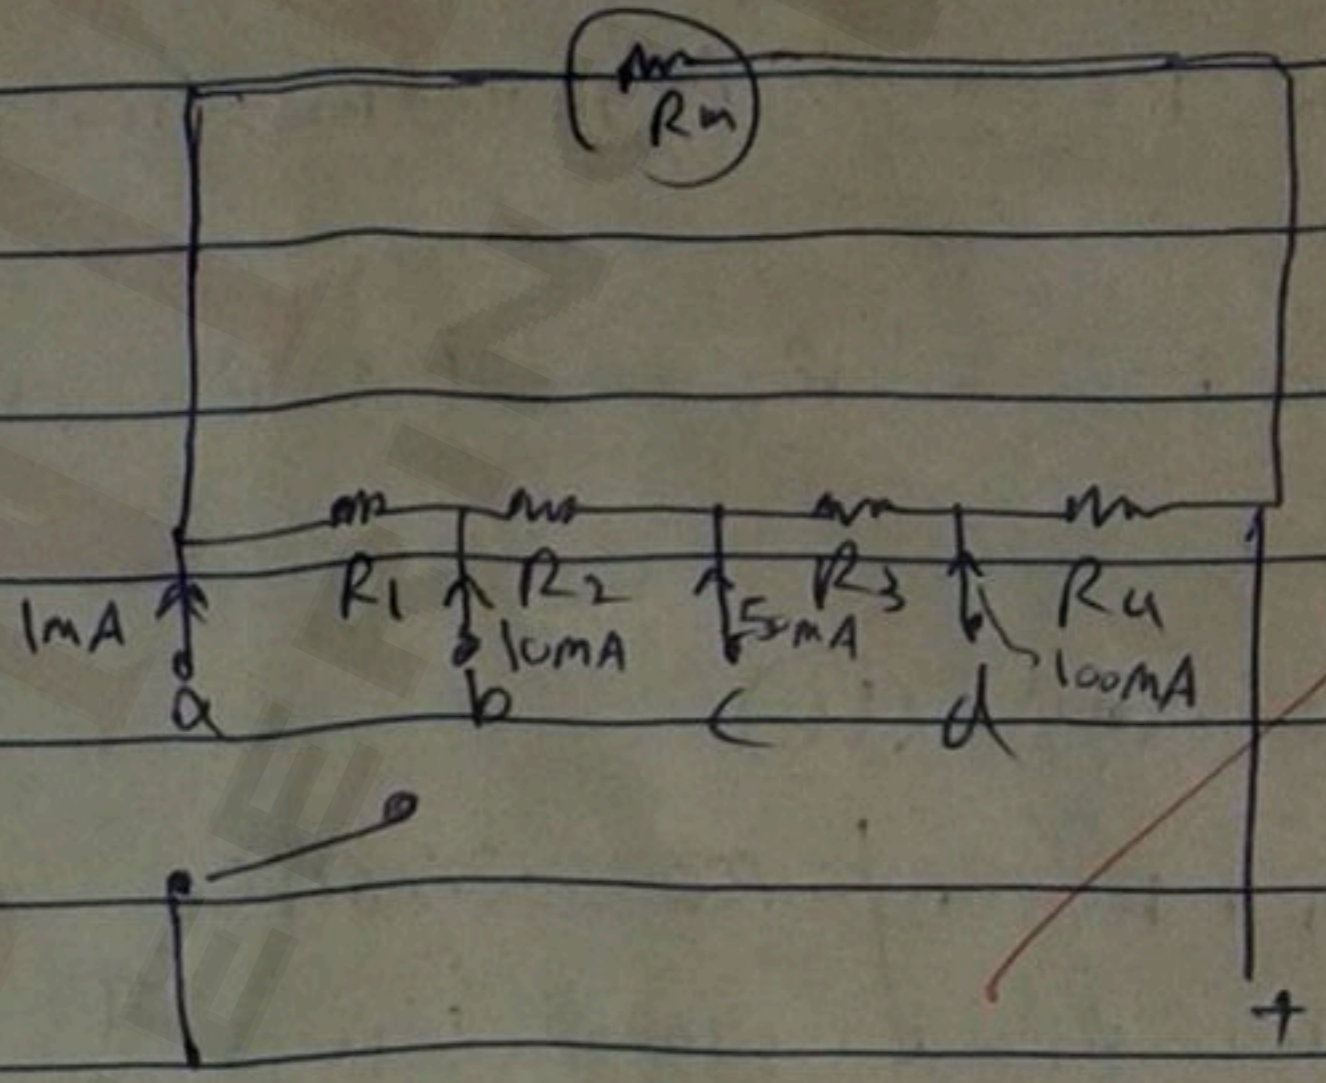 Rm
R1 R2 R3 R4
1mA 10mA 50mA 100mA
a b c d
+